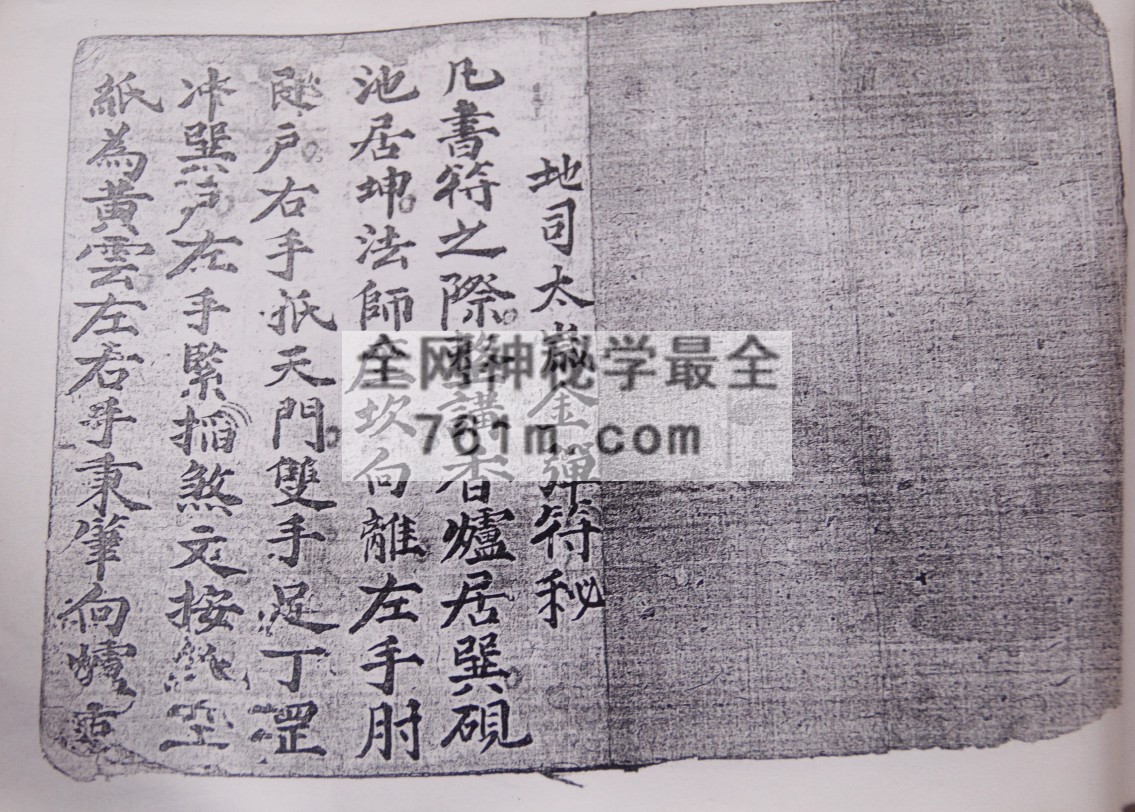 地司太歲金彈符秘
凡書符之際講香爐居巽硯
池居坤法師坎向離左手肘
戶右手抵天門雙手足丁罡
冲巽戶左手緊掐煞文按
紙為黃雲左右手秉筆向爐
全网神秘学最全
761m.com